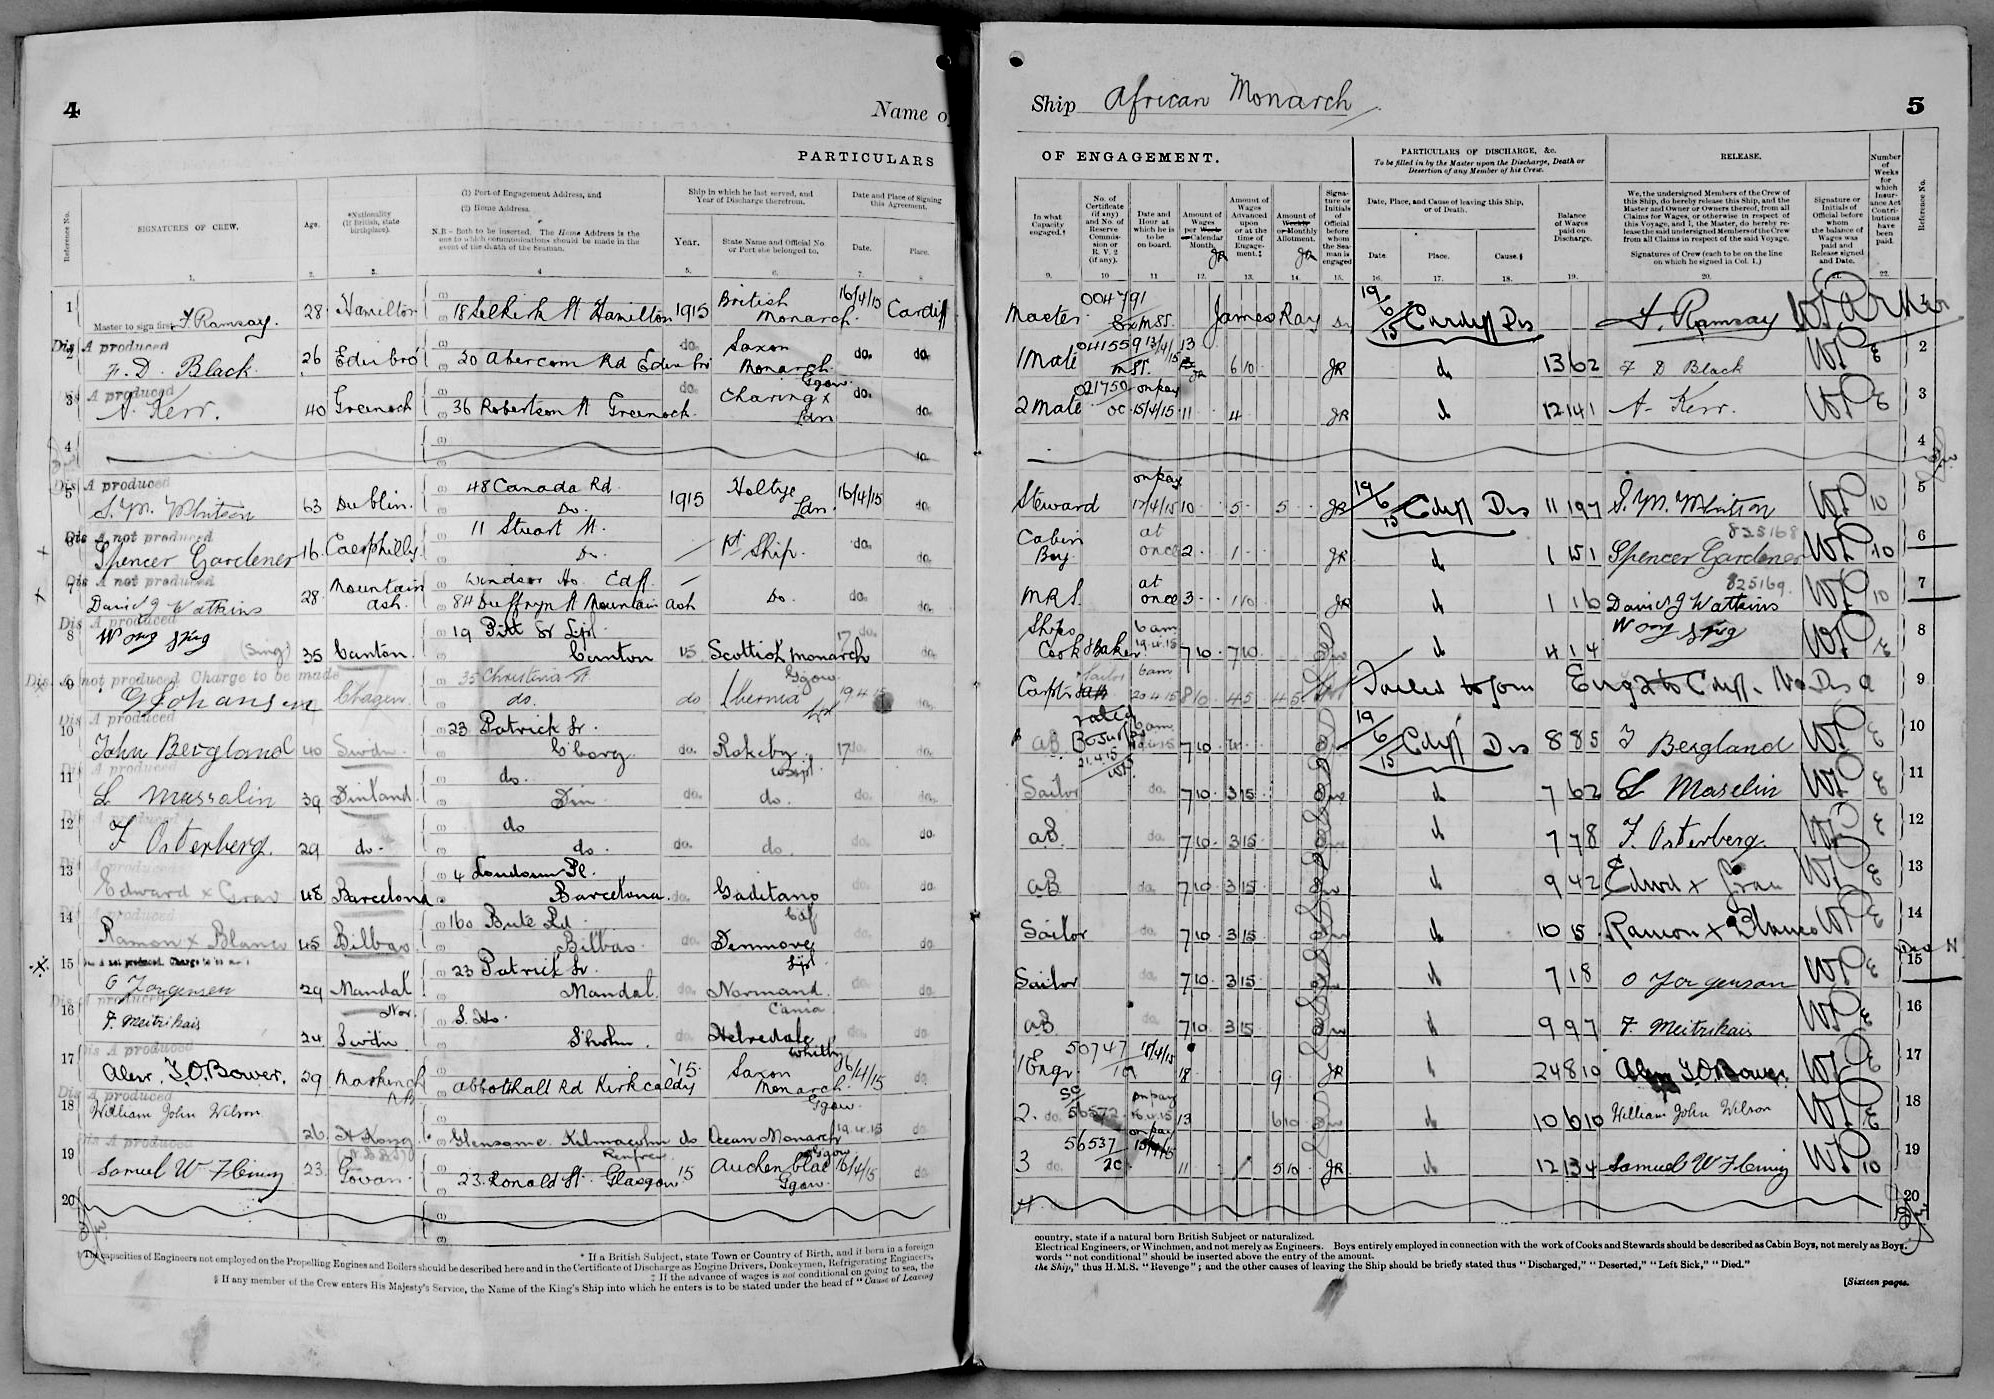 4
Name of
PARTICULARS
Reference No.
SIGNATURES OF CREW.
Age.
*Nationality
(If British, state
birthplace).
(1) Port of Engagement Address, and
(2) Home Address.
N.B.—Both to be inserted. The Home Address is the
one to which communications should be made in the
event of the death of the Seaman.
Ship in which he last served, and
Year of Discharge therefrom.
Year.
State Name and Official No.
or Port she belonged to.
Date and Place of Signing
this Agreement.
Date.
Place.
1. 2. 3. 4 5. 6. 7. 8
1 Master to sign first F. Ramsay. 28 Hamilton 18 Selkirk St Hamilton 1915 British Monarch. 16/4/15 Cardiff
Dis A produced
2 F. D. Black 26 Edinbro' 20 Abercorn Rd Edinbro do. Saxon Monarch Ggow. do. do.
Dis A produced
3 A. Kerr. 40 Greenock 36 Robertson St Greenock. do. Charing X Ldn do. do.
4 do.
Dis A produced
5 S. M. Whitson 63 Dublin. 48 Canada Rd. Do. 1915 Holtye Ldn. 16/4/15 do.
Dis A not produced
6 Spencer Gardener 16 Caerphilly. 11 Stuart St. Do. 1st Ship. do. do.
Dis A not produced
7 David J Watkins 28. Mountain Ash. Windsor Ho. Cdff. 84 Duffryn St Mountain Ash Do. do. do.
Dis A produced
8 Wong Sing (Sing) 35 Canton. 19 Pitt St Lpl. Canton 15 Scottish Monarch Ggow. 17 do. do.
Dis. A not produced Charge to be made
9 G Johansen 35 Christina St. do. do Ldn 19 4 15 do.
Dis A produced
10 John Bergland 40 Swdn. 23 Patrick St. G'borg do. Rokeby 17 do. do.
Dis A produced
11 L Massalin 39 Finland. do. Fin do. do. do. do.
12 F Osterberg. 29 do. do do. do. do. do. do.
13 Edward x Grau 48 Barcelona 4 Loudoun Pl. Barcelona. do. Gaditano Cdf do. do.
14 Ramon x Blanco 45 Bilbao 160 Bute Rd Bilbao do. Denmore Lpl. do. do.
Dis A not produced. Charge to be made
15 O Jorgensen 29 Mandal Nor. 23 Patrick St. Mandal. do. Normand. do. do.
Dis A produced
16 F. Meitrikais 24 Swdn S. Ho. S'holm. do. Helredale Whitby do. do.
Dis A produced
17 Alexr. T. O. Bower. 29 Markinch NB Abbotshall Rd Kirkcaldy '15. Saxon Monarch. Ggow. 16/4/15 do.
Dis A produced
18 William John Wilson 26. H Kong. Glensome. Kilmacolm Renfrew do Ocean Monarch Ggow 19.4.15 do
Dis A produced
19 Samuel W Fleming 23. Govan. 23. Ronald St. Glasgow 15 Auchenblae Ggow. 16/4/15 do.
20
The capacities of Engineers not employed on the Propelling Engines and Boilers should be described here and in the Certificate of Discharge as Engine Drivers, Donkeymen, Refrigerating Engineers,
* If a British Subject, state Town or Country of Birth, and if born in a foreign
‡ If the advance of wages is not conditional on going to sea, the
§ If any member of the Crew enters His Majesty's Service, the Name of the King's Ship into which he enters is to be stated under the head of "Cause of Leaving
Ship African Monarch.
5
OF ENGAGEMENT.
PARTICULARS OF DISCHARGE, &c.
To be filled in by the Master upon the Discharge, Death or
Desertion of any Member of his Crew.
RELEASE.
In what
Capacity
engaged.†
No. of
Certificate
(if any)
and No. of
Reserve
Commis-
sion or
R. V. 2
(if any).
Date and
Hour at
which he is
to be
on board.
Amount of
Wages
per Week
or Calendar
Month.
JR
Amount of
Wages
Advanced
upon
or at the
time of
Engage-
ment.‡
Amount of
Weekly
or Monthly
Allotment.
JR
Signa-
ture or
Initials
of
Official
before
whom
the Sea-
man is
engaged
Date, Place, and Cause of leaving this Ship,
or of Death.
Date Place. Cause.§
Balance
of Wages
paid on
Discharge.
We, the undersigned Members of the Crew of
this Ship, do hereby release this Ship, and the
Master and Owner or Owners thereof, from all
Claims for Wages, or otherwise in respect of
this Voyage, and I, the Master, do hereby re-
lease the said undersigned Members of the Crew
from all Claims in respect of the said Voyage.
Signatures of Crew (each to be on the line
on which he signed in Col. 1.)
Signature or
Initials of
Official before
whom
the balance of
Wages was
paid and
Release signed
and Date.
Number
of
Weeks
for
which
Insur-
ance Act
Contri-
butions
have
been
paid.
Reference No.
9. 10 11 12. 13. 14. 15. 16. 17. 18. 19. 20. 21. 22.
Master 004791 James Ray 19/6/15 Cardiff Dis F. Ramsay W Parker 1
1 Mate 041559 13/4/15 13 6 10 JR d 13 6 2 F D Black WP E 2
2 Mate 021750 on pay 15/4/15 11 4 JR d 12 14 1 A. Kerr. WP E 3
4
Steward on pay 17/4/15 10 5 5 JR 19/6/15 Cdiff Dis 11 19 7 S. M. Whitson WP 10 5
Cabin Boy at once 2 1 JR d 1 15 1 825168 Spencer Gardener WP 10 6
M.R.S. at once 3 1 10 JR d 1 16 825169 David J Watkins WP 10 7
Ships Cook & Baker 6 am 19.4.15 7 10 7 10 d 4 1 4 Wong Sing WP E 8
Carptr 6am 20 4 15 8 10 4 5 4 5 Failed to join 9
AB rated Bosun 21.4.15 6am 7 10 19/6/15 Cdiff Dis 8 8 5 J Bergland WP E 10
Sailor do. 7 10 3 15 d 7 6 2 L Maselin WP E 11
AB do. 7 10 3 15 d 7 7 8 F. Osterberg. WP E 12
AB do. 7 10 3 15 d 9 4 2 Edwd x Grau WP E 13
Sailor do. 7 10 3 15 d 10 15 Ramon x Blanco WP E 14
Sailor do. 7 10 3 15 d 7 18 O Jorgenson WP E 15
AB do. 7 10 3 15 d 9 9 7 F. Meitrikais WP E 16
1 Engr 50747 15/4/15 18 9 JR d 24 8 10 Alexr T. O. Bower. WP E 17
2. do. 56572 on pay 16.4.15 13 6 10 d 10 6 10 William John Wilson WP E 18
3 do. 56537 2c. on pay 11 5 10 JR d 12 13 4 Samuel W Fleming WP 10 19
20
country, state if a natural born British Subject or naturalized.
Electrical Engineers, or Winchmen, and not merely as Engineers. Boys entirely employed in connection with the work of Cooks and Stewards should be described as Cabin Boys, not merely as Boys.
words "not conditional" should be inserted above the entry of the amount.
the Ship," thus H.M.S. "Revenge"; and the other causes of leaving the Ship should be briefly stated thus "Discharged," "Deserted," "Left Sick," "Died."
[Sixteen pages.